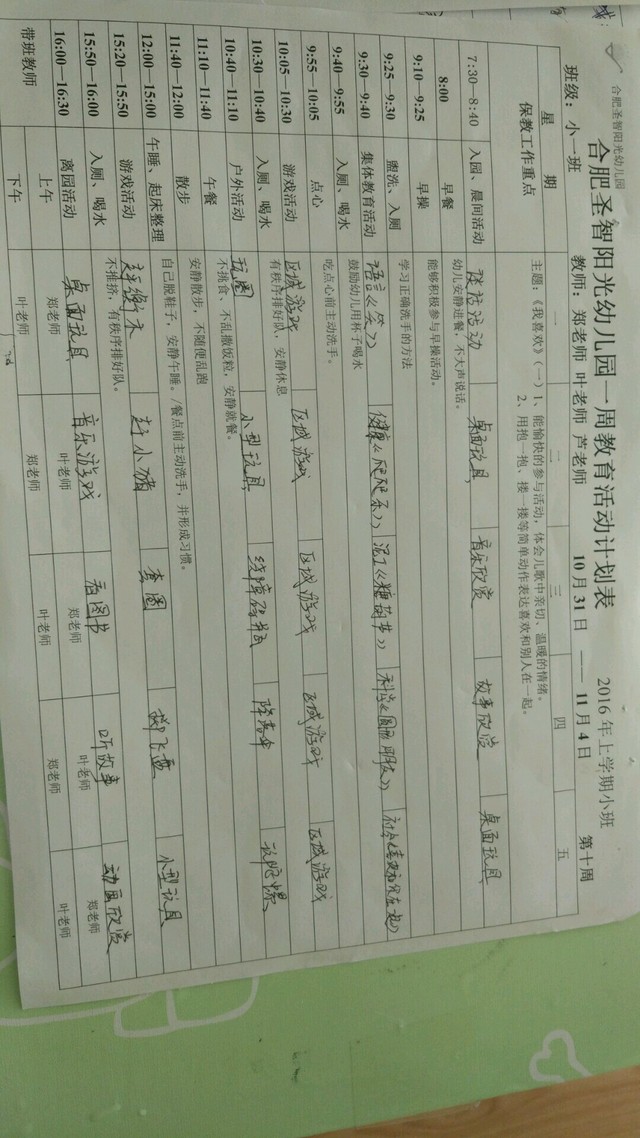 合肥圣智阳光幼儿园
合肥圣智阳光幼儿园一周教育活动计划表 2016年上学期小班
班级：小一班 教师：郑老师 叶老师 芦老师 10月31日 —— 11月4日 第十周
星期 一 二 三 四 五
保教工作重点 主题：《我喜欢》（一）1、能愉快的参与活动，体会儿歌中亲切、温暖的情绪。
2、用抱一抱、搂一搂等简单动作表达喜欢和别人在一起。
7:30-8:40 入园、晨间活动 谈话活动 桌面玩具 音乐欣赏 故事欣赏 桌面玩具
8:00 早餐 幼儿安静进餐，不大声说话。
9:10—9:25 早操 能够积极参与早操活动。
9:25—9:30 盥洗、入厕 学习正确洗手的方法
9:30—9:40 集体教育活动 语言《笑》 健康《爬爬乐》 混工《糖葫芦》 科学《圆圆朋友》
9:40—9:55 入厕、喝水 鼓励幼儿用杯子喝水
9:55—10:05 点心 吃点心前主动洗手。
10:05—10:30 游戏活动 区域游戏 区域游戏 区域游戏 区域游戏 区域游戏
10:30—10:40 入厕、喝水 有秩序排好队，安静休息
10:40—11:10 户外活动 玩圈 小型玩具 降落伞
11:10—11:40 午餐 不挑食、不乱撒饭粒，安静就餐。
11:40—12:00 散步 安静散步，不随便乱跑
12:00—15:00 午睡、起床整理 自己脱鞋子，安静午睡。/餐点前主动洗手，并形成习惯。
15:20—15:50 游戏活动 赶小猪 套圈 小型玩具
15:50—16:00 入厕、喝水 不推挤，有秩序排好队。
16:00—16:30 离园活动 桌面玩具 音乐游戏 看图书 听故事 动画欣赏
带班教师 上午 郑老师 叶老师 郑老师 叶老师 郑老师
下午 叶老师 郑老师 叶老师 郑老师 叶老师